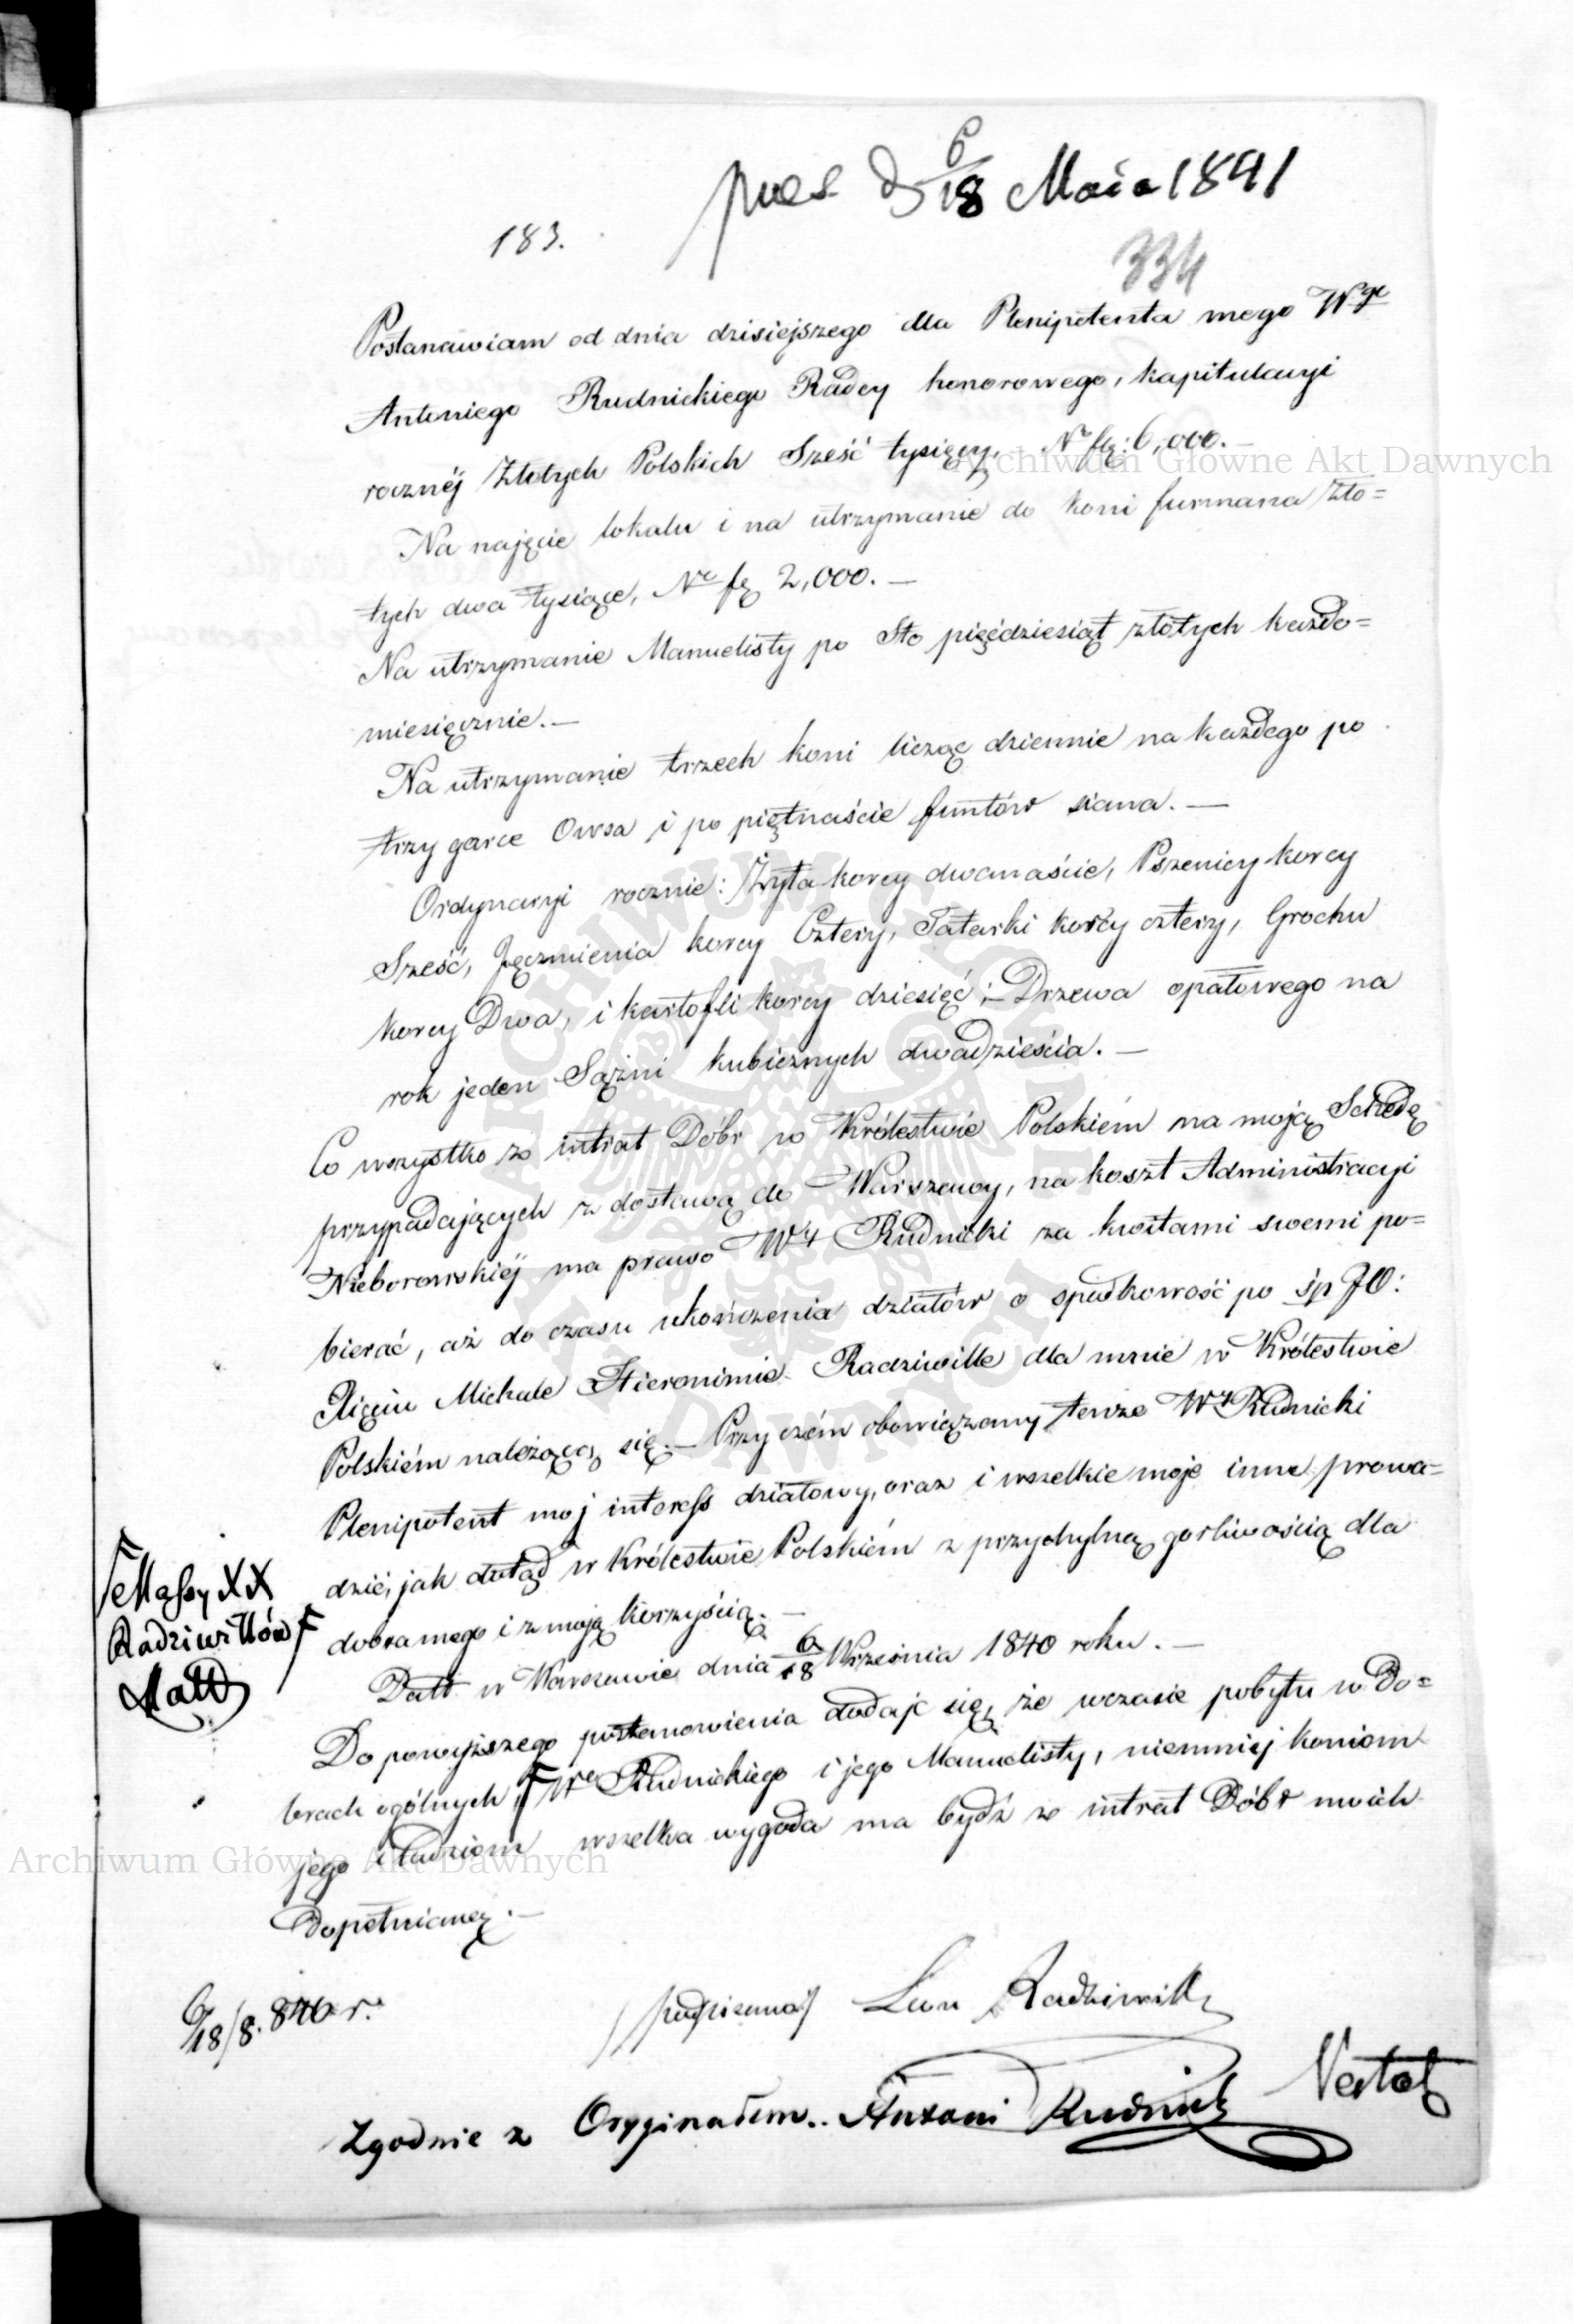 pres d 6/18 Maia 1841
183.
334
Postanawiam od dnia dzisiejszego dla Plenipotenta mego Wgo
Antoniego Rudnickiego Radcy honorowego, kapitulacyi
rocznéj Złotych Polskich Sześć tysięcy, No fl: 6,000.—
Na najęcie lokalu i na utrzymanie do koni furmana Zło=
tych dwa tysiące, No fl 2,000.—
Na utrzymanie Manuelisty po Sto pięćdziesiąt złotych każdo=
miesięcznie.—
Na utrzymanie trzech koni licząc dziennie na każdego po
trzy garce Owsa i po piętnaście funtów siana.—
Ordynaryi rocznie: Żyta korcy dwanaście, Pszenicy korcy
Sześć, Jęczmienia korcy Cztery, Tatarki korcy cztery, Grochu
korcy Dwa, i kartofli korcy dziesięć;— Drzewa opałowego na
rok jeden Sążni kubicznych dwadzieścia.—
Co wszystko z intrat Dóbr w Królestwie Polskiém na moją Schedę
przypadających z dostawą do Warszawy, na koszt Administracyi
Nieborowskiéj ma prawo Wy Rudnicki za kwitami swemi po=
bierać, aż do czasu ukończenia działów o spadkowość po śp JO:
Xięciu Michale Hieronimie Radziwille dla mnie w Królestwie
Polskiém należącą się.— Przy czém obowiązany tenże Wy Rudnicki
Plenipotent moj interess działowy, oraz i wszelkie moje inne prowa=
dzić, jak dotąd w Królestwie Polskiém z przychylną gorliwością dla
dobra mego i z moją korzyścią.—
Datt w Warszawie dnia 6/18 Września 1840 roku.—
Do powyższego postanowienia dodaje się, że w czasie pobytu w Do=
brach ogólnych, F Wo Rudnickiego i jego Manuelisty, niemniej koniom
jego i ludziom wszelka wygoda ma bydź z intrat Dóbr moich
Dopełnianą.—
F Massy XX
Radziwiłłów F
6/18/8. 840 r.
/podpisano/ Leon Radziwiłł
Zgodnie z Oryginałem.. Antoni Rudnicki
Archiwum Główne Akt Dawnych
Archiwum Główne Akt Dawnych
ARCHIWUM GŁÓWNE AKT DAWNYCH